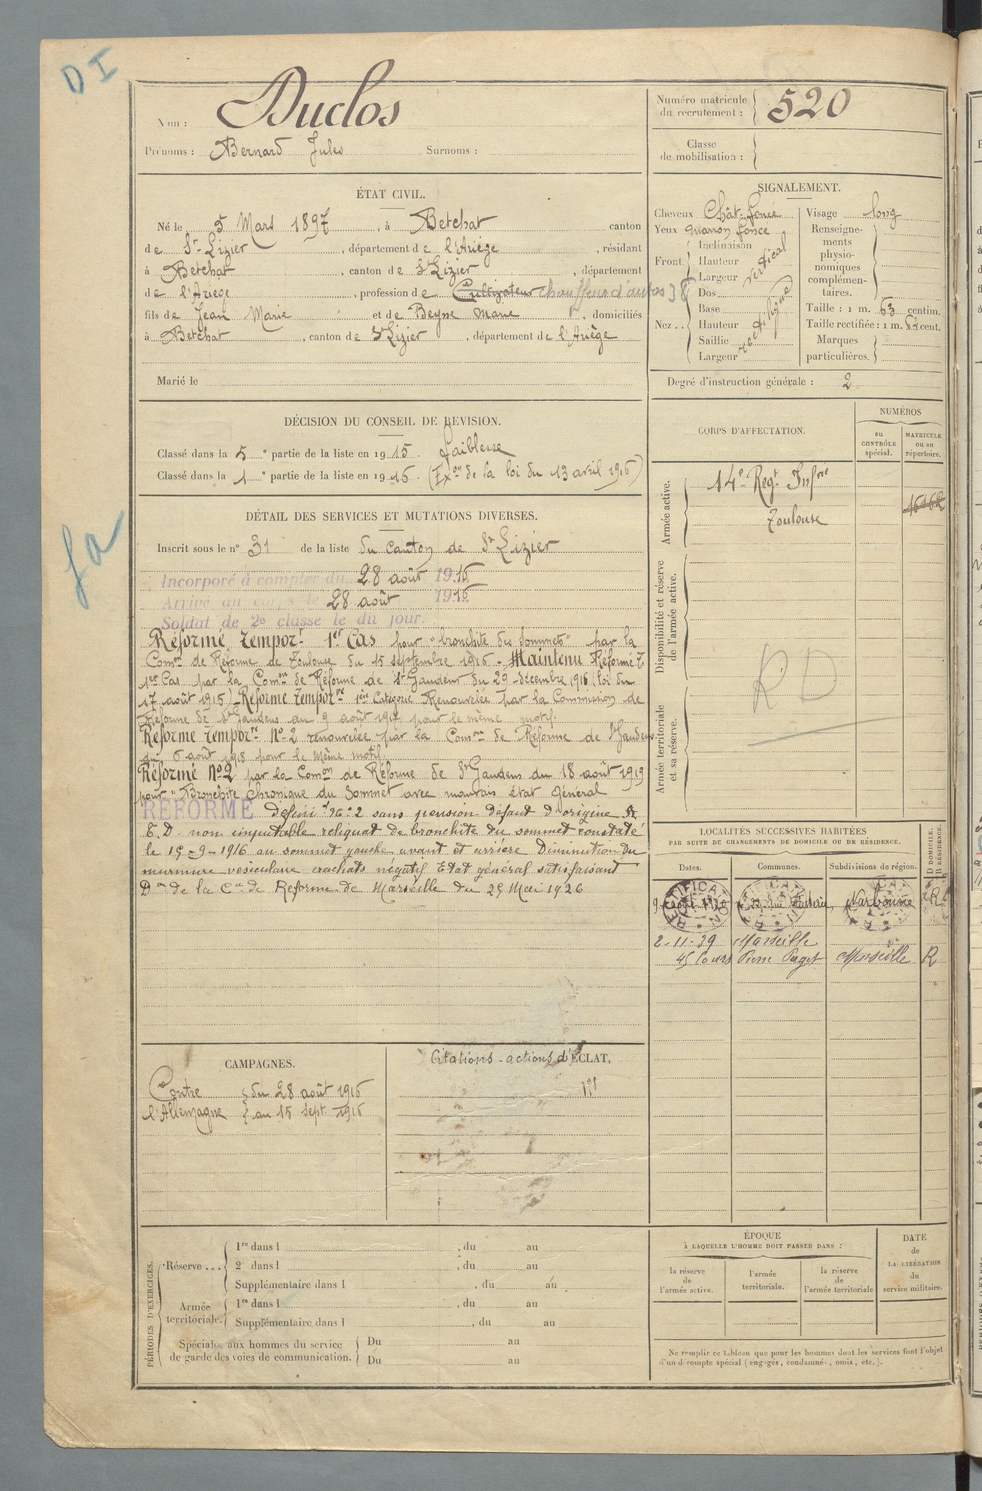 DI
Nom : Duclos
Prénoms : Bernard Jules Surnoms :
Numéro matricule du recrutement : 520
Classe de mobilisation :
ÉTAT CIVIL.
Né le 5 Mars 1897, à Betchat canton
de St-Lizier, département de l'Ariège, résidant
à Betchat, canton de St Lizier, département
de l'Ariège, profession de Cultivateur chauffeur d'autos
fils de Jean Marie et de Beyne Marie, domiciliés
à Betchat, canton de St Lizier, département de l'Ariège
Marié le
SIGNALEMENT.
Cheveux Chât. foncé
Yeux marron foncé
Front. Inclinaison
Hauteur vertical
Largeur
Nez . . Dos
Base
Hauteur rectiligne
Saillie
Largeur
Visage long
Renseignements physionomiques complémentaires.
Taille : 1 m. 63 centim.
Taille rectifiée : 1 m. 64 cent.
Marques particulières.
Degré d'instruction générale : 2
DÉCISION DU CONSEIL DE REVISION.
Classé dans la 5e partie de la liste en 1915. faiblesse
Classé dans la 1e partie de la liste en 1916. (Exon de la loi du 13 avril 1916)
DÉTAIL DES SERVICES ET MUTATIONS DIVERSES.
Inscrit sous le n° 31 de la liste du canton de St Lizier
Incorporé à compter du 28 août 1916
Arrivé au corps le 28 août 1916
Soldat de 2e classe le du jour.
Réformé tempor.t 1er Cas pour "bronchite des sommets" par la
Comon de Réforme de Toulouse du 15 septembre 1916 - Maintenu Réformé T.
1er Cas par la Comon de Réforme de St Gaudens du 29 décembre 1916 (loi du
17 août 1915) - Réformé tempore 1ère Catégorie Renouvelée par la Commission de
Réforme de St Gaudens du 9 août 1917 pour le même motif.
Réforme tempore N°2 renouvelée par la Comon de Réforme de St Gaudens
du 6 août 1918 pour le même motif.
Réformé N°2 par la Comon de Réforme de St Gaudens du 18 août 1919
pour "Bronchite chronique du Sommet avec mauvais état général
RÉFORMÉ définitif n° 2 sans pension défaut d'origine
E.D. non imputable reliquat de bronchite du sommet constaté
le 15-9-1916 au sommet gauche avant et arrière Diminution du
murmure vésiculaire crachats négatifs Etat général satisfaisant
Don de la Con de Réforme de Marseille du 25 Mai 1926
CORPS D'AFFECTATION.
NUMÉROS
au CONTRÔLE spécial.
MATRICULE ou au répertoire.
Armée active.
14e Regt Infrie
Toulouse
Disponibilité et réserve de l'armée active.
RD
Armée territoriale et sa réserve.
LOCALITÉS SUCCESSIVES HABITÉES
PAR SUITE DE CHANGEMENTS DE DOMICILE OU DE RÉSIDENCE.
Dates. Communes. Subdivisions de région. D DOMICILE. R RÉSIDENCE.
RECTIFICATION
Narbonne
2-11-39 Marseille
45 Cours Pierre Puget Marseille R
CAMPAGNES.
Contre l'Allemagne du 28 août 1916
au 15 Sept. 1916
Citations - actions d'ÉCLAT,
PÉRIODES D'EXERCICES.
Réserve . . . 1re dans l , du au
2e dans l , du au
Supplémentaire dans l , du au
Armée territoriale. 1re dans l , du au
Supplémentaire dans l , du au
Spéciales aux hommes du service de garde des voies de communication. Du au
Du au
ÉPOQUE
À LAQUELLE L'HOMME DOIT PASSER DANS :
la réserve de l'armée active.
l'armée territoriale.
la réserve de l'armée territoriale
DATE de LA LIBÉRATION du service militaire.
Ne remplir ce tableau que pour les hommes dont les services font l'objet
d'un décompte spécial (engagés, condamnés, omis, etc.).